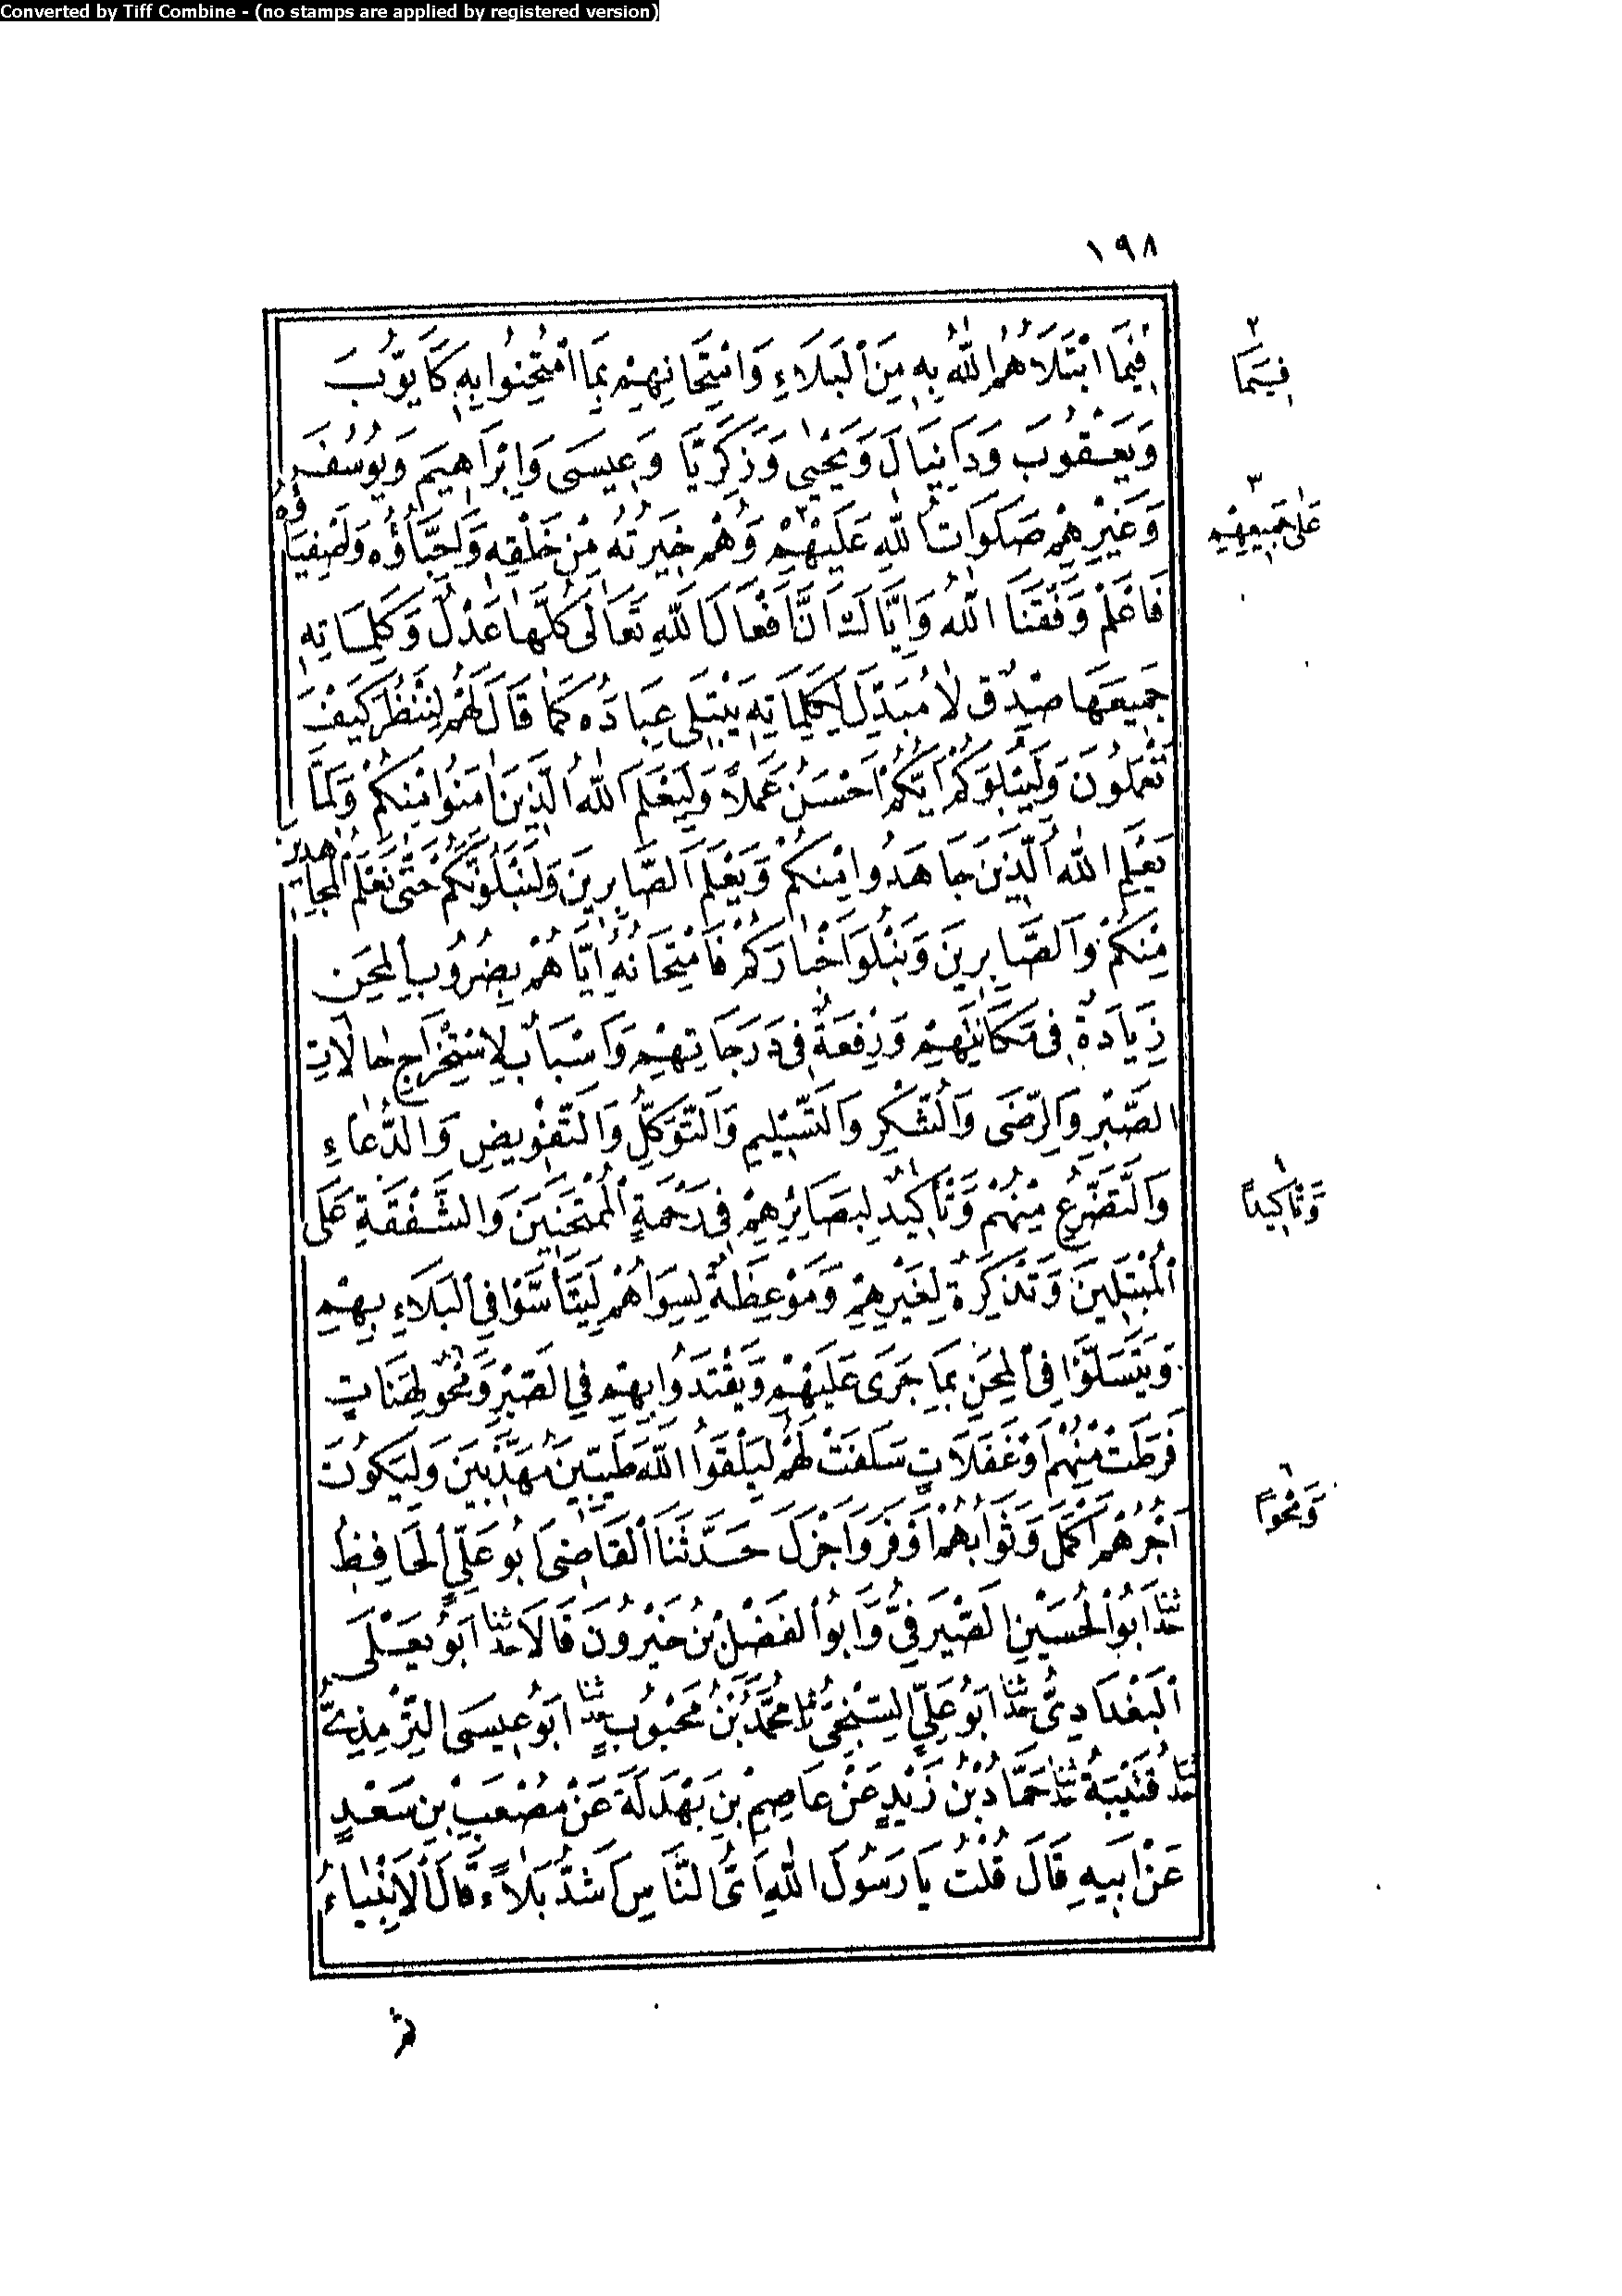 Converted by Tiff Combine - (no stamps are applied by registered version)
١٩٨
فِيمَا ابْتَلَاهُمُ اللّٰهُ بِهِ مِنَ الْبَلَاءِ وَامْتِحَانِهِمْ بِمَا امْتُحِنُوا بِهِ كَاَيُّوبَ
وَيَعْقُوبَ وَدَانِيَالَ وَيَحْيٰى وَزَكَرِيَّا وَعِيسَى وَاِبْرَاهِيمَ وَيُوسُفَ
وَغَيْرِهِمْ صَلَوَاتُ اللّٰهِ عَلَيْهِمْ وَهُمْ خِيَرَتُهُ مِنْ خَلْقِهِ وَاَحِبَّاؤُهُ وَاَصْفِيَاؤُهُ
فَاعْلَمْ وَفَّقَنَا اللّٰهُ وَاِيَّاكَ اَنَّ اَفْعَالَ اللّٰهِ تَعَالَى كُلَّهَا عَدْلٌ وَكَلِمَاتِهِ
جَمِيعَهَا صِدْقٌ لَا مُبَدِّلَ لِكَلِمَاتِهِ يَبْتَلِى عِبَادَهُ كَمَا قَالَ لَهُمْ لِنَنْظُرَ كَيْفَ
تَعْمَلُونَ وَلِيَبْلُوَكُمْ اَيُّكُمْ اَحْسَنُ عَمَلاً وَلِيَعْلَمَ اللّٰهُ الَّذِينَ اٰمَنُوا مِنْكُمْ وَلَمَّا
يَعْلَمِ اللّٰهُ الَّذِينَ جَاهَدُوا مِنْكُمْ وَيَعْلَمَ الصَّابِرِينَ وَلَنَبْلُوَنَّكُمْ حَتَّى نَعْلَمَ الْمُجَاهِدِينَ
مِنْكُمْ وَالصَّابِرِينَ وَنَبْلُوَ اَخْبَارَكُمْ فَامْتِحَانُهُ اِيَّاهُمْ بِضُرُوبِ الْمِحَنِ
زِيَادَةٌ فِى مَكَانَتِهِمْ وَرِفْعَةٌ فِى دَرَجَاتِهِمْ وَاَسْبَابٌ لِاسْتِخْرَاجِ حَالَاتِ
الصَّبْرِ وَالرِّضَى وَالشُّكْرِ وَالتَّسْلِيمِ وَالتَّوَكُّلِ وَالتَّفْوِيضِ وَالدُّعَاءِ
وَالتَّضَرُّعِ مِنْهُمْ وَتَأْكِيدٌ لِبَصَائِرِهِمْ فِى رَحْمَةِ الْمُمْتَحَنِينَ وَالشَّفَقَةِ عَلَى
الْمُبْتَلِينَ وَتَذْكِرَةٌ لِغَيْرِهِمْ وَمَوْعِظَةٌ لِسِوَاهُمْ لِيَتَأَسَّوْا فِى الْبَلَاءِ بِهِمْ
وَيَتَسَلَّوْا فِى الْمِحَنِ بِمَا جَرَى عَلَيْهِمْ وَيَقْتَدُوا بِهِمْ فِى الصَّبْرِ وَمَحْوٌ لِهَنَاتٍ
فَرَطَتْ مِنْهُمْ اَوْ غَفَلَاتٍ سَلَفَتْ لَهُمْ لِيَلْقَوُا اللّٰهَ طَيِّبِينَ مُهَذَّبِينَ وَلِيَكُونَ
اَجْرُهُمْ اَكْمَلَ وَثَوَابُهُمْ اَوْفَرَ وَاَجْزَلَ حَدَّثَنَا الْقَاضِى اَبُو عَلِيٍّ الْحَافِظُ
حَدَّثَنَا اَبُو الْحُسَيْنِ الصَّيْرَفِىُّ وَاَبُو الْفَضْلِ بْنُ خَيْرُونَ قَالَا حَدَّثَنَا اَبُو يَعْلَى
الْبَغْدَادِىُّ حَدَّثَنَا اَبُو عَلِيٍّ السِّنْجِىُّ ثنا مُحَمَّدُ بْنُ مَحْبُوبٍ حَدَّثَنَا اَبُو عِيسَى التِّرْمِذِىُّ
حَدَّثَنَا قُتَيْبَةُ حَدَّثَنَا حَمَّادُ بْنُ زَيْدٍ عَنْ عَاصِمِ بْنِ بَهْدَلَةَ عَنْ مُصْعَبِ بْنِ سَعْدٍ
عَنْ اَبِيهِ قَالَ قُلْتُ يَا رَسُولَ اللّٰهِ اَىُّ النَّاسِ اَشَدُّ بَلَاءً قَالَ الْاَنْبِيَاءُ
٢
فِيمَا
٣
عَلٰى جَمِيعِهِمْ
٨
وَتَأْكِيداً
٦
وَمَحْواً